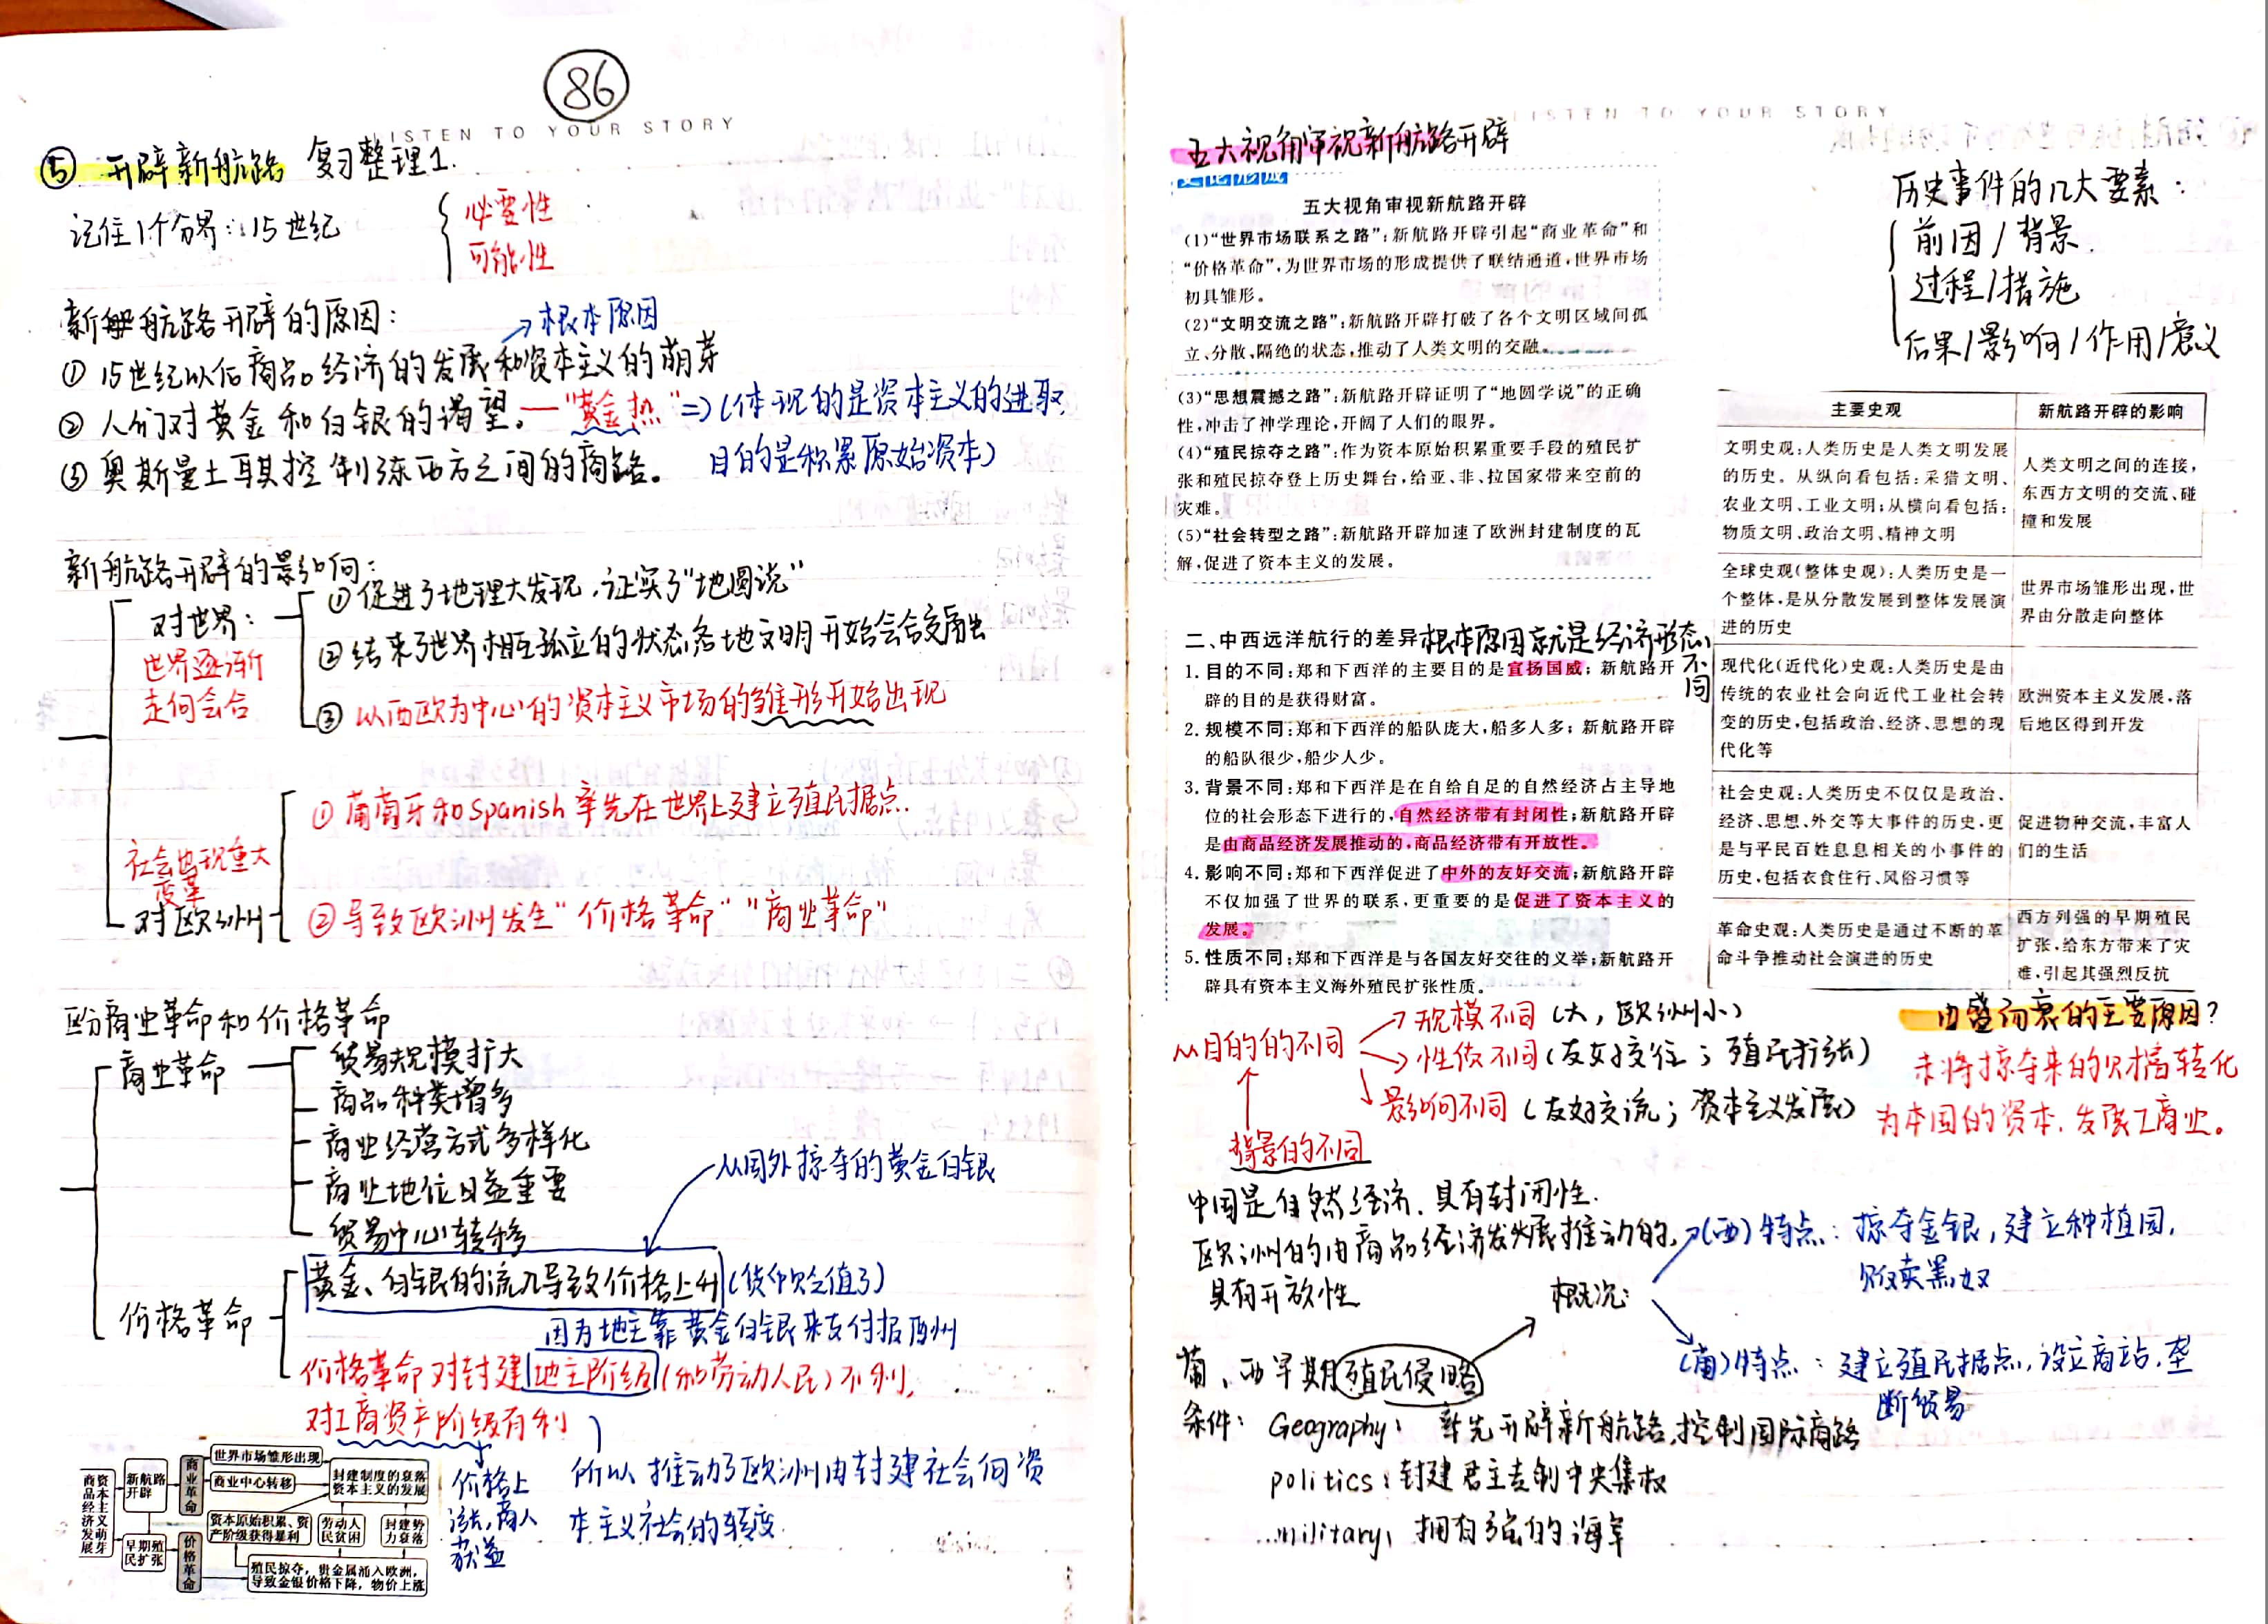 86
LISTEN TO YOUR STORY
⑤ 开辟新航路 复习整理1.
记住1个分界：15世纪
必要性
可能性
新航路开辟的原因：
→根本原因
① 15世纪以后商品经济的发展和资本主义的萌芽
② 人们对黄金和白银的渴望。—"黄金热"⇒(体现的是资本主义的进取,
目的是积累原始资本)
③ 奥斯曼土耳其控制东西方之间的商路。
新航路开辟的影响：
对世界：
世界逐渐
走向会合
① 促进了地理大发现，证实了"地圆说"
② 结束了世界相互孤立的状态各地文明开始会合交融
③ 以西欧为中心的资本主义市场的雏形开始出现
社会出现重大
变革
对欧洲
① 葡萄牙和Spanish率先在世界上建立殖民据点.
② 导致欧洲发生"价格革命""商业革命"
区分商业革命和价格革命
商业革命
贸易规模扩大
商品种类增多
商业经营方式多样化
商业地位日益重要
贸易中心转移
从国外掠夺的黄金白银
价格革命
黄金、白银的流入导致价格上升(货币贬值了)
因为地主靠黄金白银来支付报酬
价格革命对封建地主阶级(和劳动人民)不利,
对工商资产阶级有利
价格上
涨,商人
获益
所以推动了欧洲由封建社会向资
本主义社会的转变
商品经济发展
资本主义萌芽
新航路
开辟
早期殖
民扩张
商业革命
价格革命
世界市场雏形出现
商业中心转移
封建制度的衰落
资本主义的发展
资本原始积累、资
产阶级获得暴利
劳动人
民贫困
封建势
力衰落
殖民掠夺，贵金属涌入欧洲，
导致金银价格下降，物价上涨
LISTEN TO YOUR STORY
五大视角审视新航路开辟
五大视角审视新航路开辟
(1)“世界市场联系之路”：新航路开辟引起“商业革命”和
“价格革命”，为世界市场的形成提供了联结通道，世界市场
初具雏形。
(2)“文明交流之路”：新航路开辟打破了各个文明区域间孤
立、分散、隔绝的状态，推动了人类文明的交融。
(3)“思想震撼之路”：新航路开辟证明了“地圆学说”的正确
性，冲击了神学理论，开阔了人们的眼界。
(4)“殖民掠夺之路”：作为资本原始积累重要手段的殖民扩
张和殖民掠夺登上历史舞台，给亚、非、拉国家带来空前的
灾难。
(5)“社会转型之路”：新航路开辟加速了欧洲封建制度的瓦
解，促进了资本主义的发展。
历史事件的几大要素：
前因/背景.
过程/措施
后果/影响/作用/意义
主要史观 新航路开辟的影响
文明史观：人类历史是人类文明发展
的历史。从纵向看包括：采猎文明、
农业文明、工业文明；从横向看包括：
物质文明、政治文明、精神文明
人类文明之间的连接，
东西方文明的交流、碰
撞和发展
全球史观(整体史观)：人类历史是一
个整体，是从分散发展到整体发展演
进的历史
世界市场雏形出现，世
界由分散走向整体
现代化(近代化)史观：人类历史是由
传统的农业社会向近代工业社会转
变的历史，包括政治、经济、思想的现
代化等
欧洲资本主义发展，落
后地区得到开发
社会史观：人类历史不仅仅是政治、
经济、思想、外交等大事件的历史，更
是与平民百姓息息相关的小事件的
历史，包括衣食住行、风俗习惯等
促进物种交流，丰富人
们的生活
革命史观：人类历史是通过不断的革
命斗争推动社会演进的历史
西方列强的早期殖民
扩张，给东方带来了灾
难，引起其强烈反抗
二、中西远洋航行的差异 根本原因就是经济形态不同
1. 目的不同：郑和下西洋的主要目的是宣扬国威；新航路开
辟的目的是获得财富。
2. 规模不同：郑和下西洋的船队庞大，船多人多；新航路开辟
的船队很少，船少人少。
3. 背景不同：郑和下西洋是在自给自足的自然经济占主导地
位的社会形态下进行的，自然经济带有封闭性；新航路开辟
是由商品经济发展推动的，商品经济带有开放性。
4. 影响不同：郑和下西洋促进了中外的友好交流；新航路开辟
不仅加强了世界的联系，更重要的是促进了资本主义的
发展。
5. 性质不同：郑和下西洋是与各国友好交往的义举；新航路开
辟具有资本主义海外殖民扩张性质。
从目的的不同
规模不同(大，欧洲小)
性质不同(友好交往；殖民扩张)
影响不同(友好交流；资本主义发展)
背景的不同
由盛而衰的主要原因?
未将掠夺来的财富转化
为本国的资本,发展工商业。
中国是自然经济，具有封闭性.
欧洲的由商品经济发展推动的,
具有开放性
葡、西早期殖民侵略
概况：
(西)特点：掠夺金银,建立种植园,
贩卖黑奴
(葡)特点：建立殖民据点,设立商站,垄
断贸易
条件：Geography：率先开辟新航路,控制国际商路
politics：封建君主专制中央集权
military：拥有强的海军